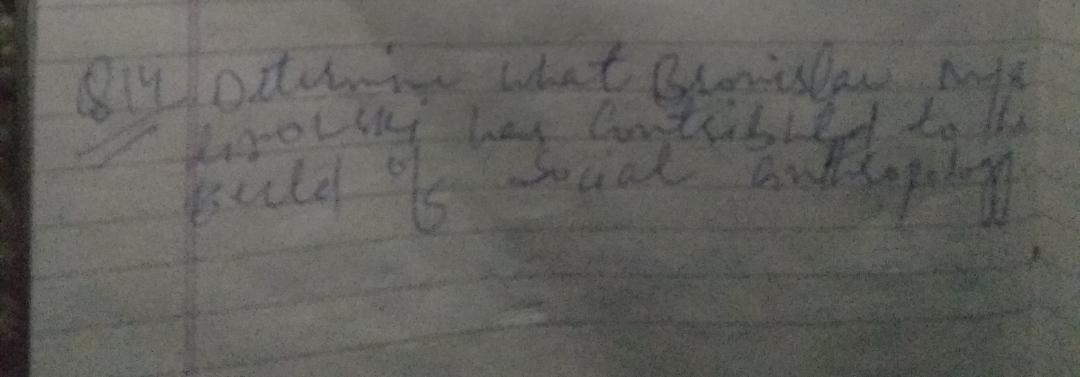 Q14 Determine what Bronislaw
has contributed to the
field of Social anthropology